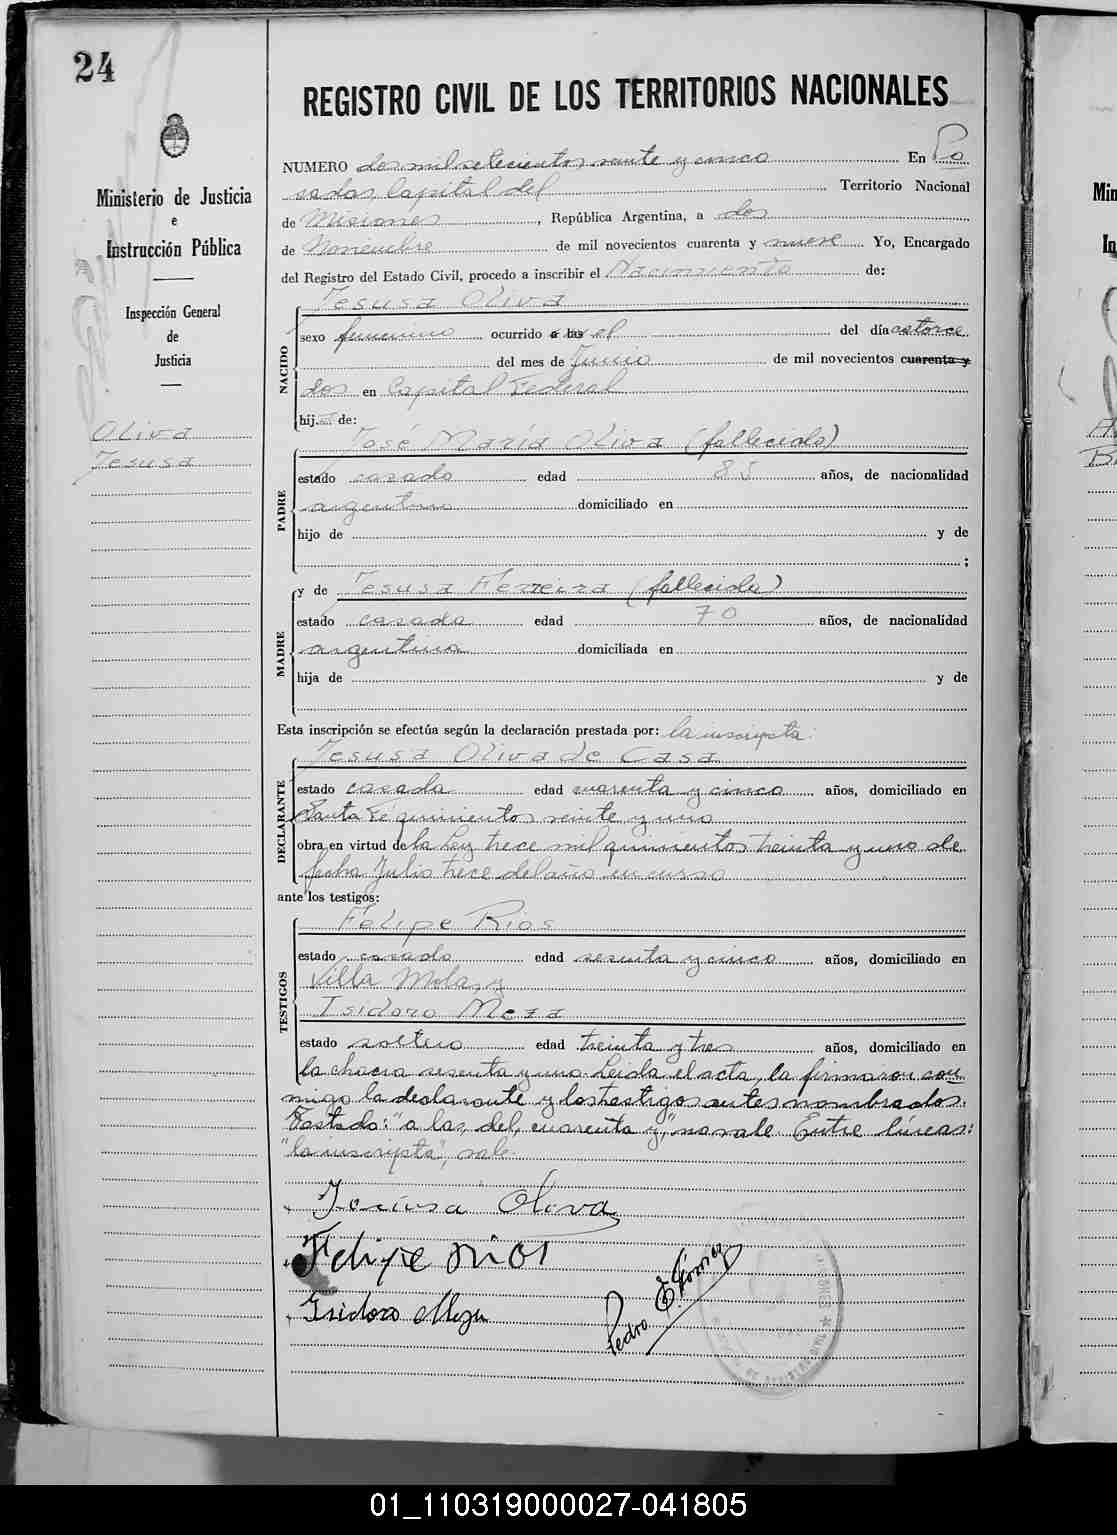 24
Ministerio de Justicia
e
Instrucción Pública
Inspección General
de
Justicia
Oliva
Jesusa
REGISTRO CIVIL DE LOS TERRITORIOS NACIONALES
NUMERO dos mil setecientos veinte y cinco En Po
sadas, Capital del Territorio Nacional
de Misiones, República Argentina, a dos
de Noviembre de mil novecientos cuarenta y nueve Yo, Encargado
del Registro del Estado Civil, procedo a inscribir el Nacimiento de:
Jesusa Oliva
NACIDO
sexo femenino ocurrido a las el del día catorce
del mes de Junio de mil novecientos cuarenta y
dos en Capital Federal
hij de:
José María Oliva (fallecido)
PADRE
estado casado edad 85 años, de nacionalidad
argentino domiciliado en
hijo de y de
;
y de Jesusa Ferreira (fallecida)
MADRE
estado casada edad 70 años, de nacionalidad
argentina domiciliada en
hija de y de
Esta inscripción se efectúa según la declaración prestada por: la inscripta
Jesusa Oliva de Casa
DECLARANTE
estado casada edad cuarenta y cinco años, domiciliado en
Santa Fe quinientos veinte y uno
obra en virtud de la Ley trece mil quinientos treinta y uno de
fecha Julio trece del año en curso
ante los testigos:
Felipe Rios
TESTIGOS
estado casado edad sesenta y cinco años, domiciliado en
Villa Molas, y
Isidoro Meza
estado soltero edad treinta y tres años, domiciliado en
la chacra sesenta y uno. Leida el acta, la firmaron con
migo la declarante y los testigos antes nombrados.
Testado: "a las, del, cuarenta y", no vale. Entre líneas:
"la inscripta", vale.
Jesusa Oliva
Felipe Rios
Isidoro Meza
Pedro E.
01_110319000027-041805